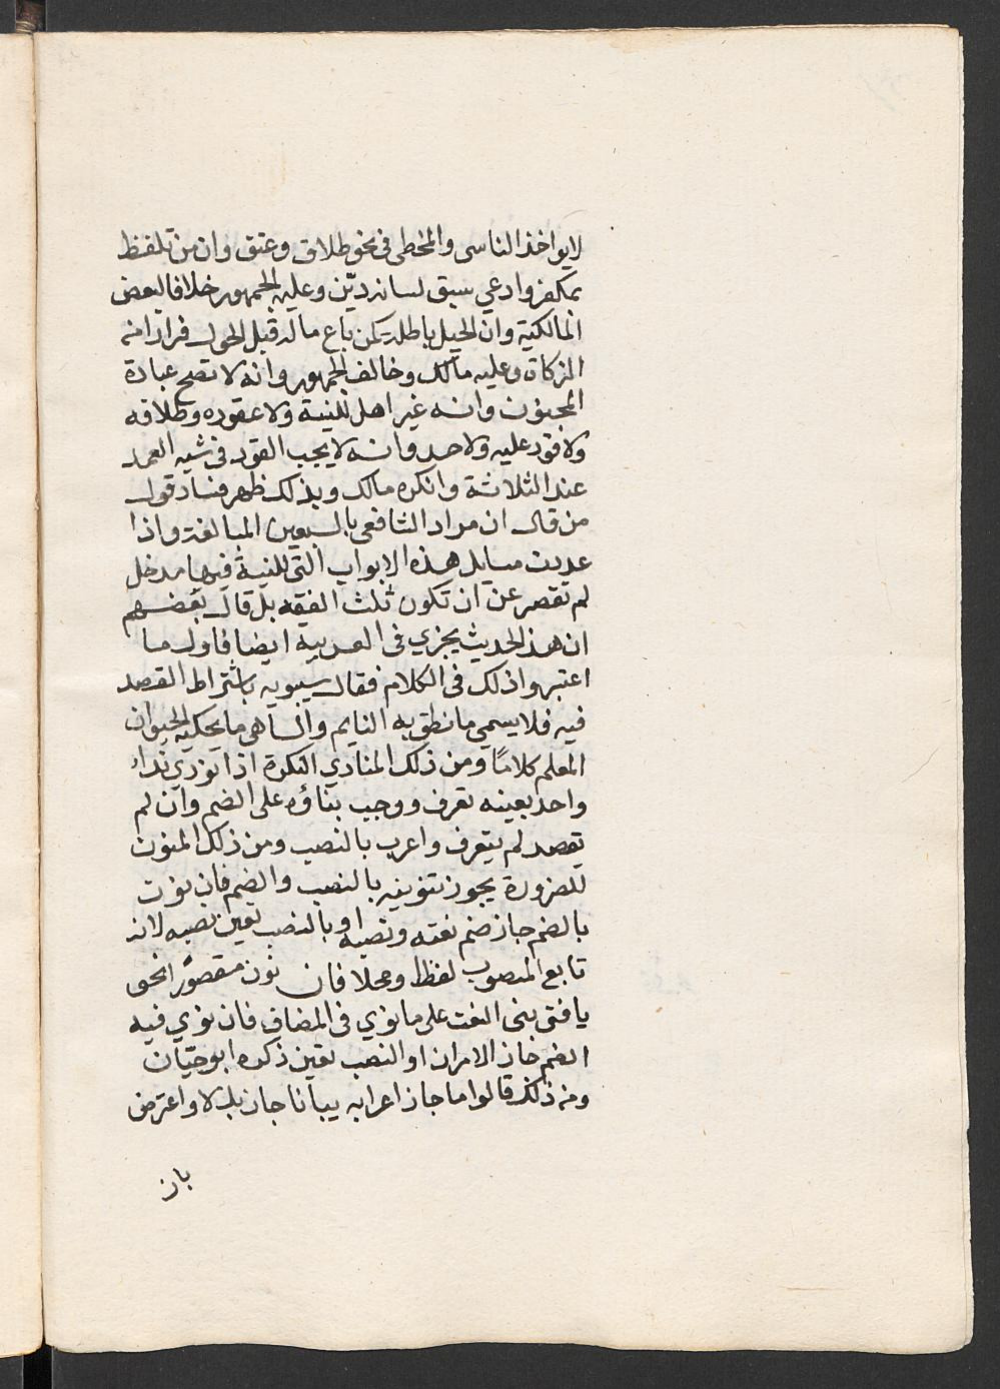 لايواخذ الناسى والمخطى فى نحو طلاق وعتق وان من تلفظ
بمكفر وادعي سبق لسانه ديّن وعليه الجمهور خلافا لبعض
المالكية وان الحيل باطلة كمن باع ماله قبل الحول فرارا من
الزكاة وعليه مالك وخالف الجمهور وانه لا تصح عبادة
المجنون وانه غير اهل للنية ولا عقوده وطلاقه
ولا قود عليه ولا حد وانه لا يجب القود فى شبه العمد
عند الثلاثة وانكره مالك وبذلك ظهر فساد قول
من قال ان مراد الشافعى بالسبعين المبالغة واذا
عديت مسايل هذه الابواب التى للنية فيها مدخل
لم تقصر عن ان تكون ثلث الفقه بل قال بعضهم
ان هذا الحديث يجزي فى العربية ايضا فاول ما
اعتبروا ذلك فى الكلام فقال سيبويه باشتراط القصد
فيه فلا يسمي ما نطق به النايم والساهى وما يحكيه الحيوان
المعلم كلامًا ومن ذلك المنادي النكرة اذا نودي نداء
واحد بعينه تعرف ووجب بناؤه على الضم وان لم
يقصد لم يتعرف واعرب بالنصب ومن ذلك المنون
للضرورة يجوز تنوينه بالنصب والضم فان نون
بالضم جاز ضم نعته ونصبه او بالنصب تعين نصبه لانه
تابع المنصوب لفظا ومحلا فان نون مقصورٌ نحو
يا فتى بنى النعت على ما نوي فى المضاف فان نوي فيه
الضم جاز الامران او النصب تعين ذكره ابو حيّان
ومن ذلك قالوا ما جاز اعرابه بيانا جاز بدلا واعترض
بان